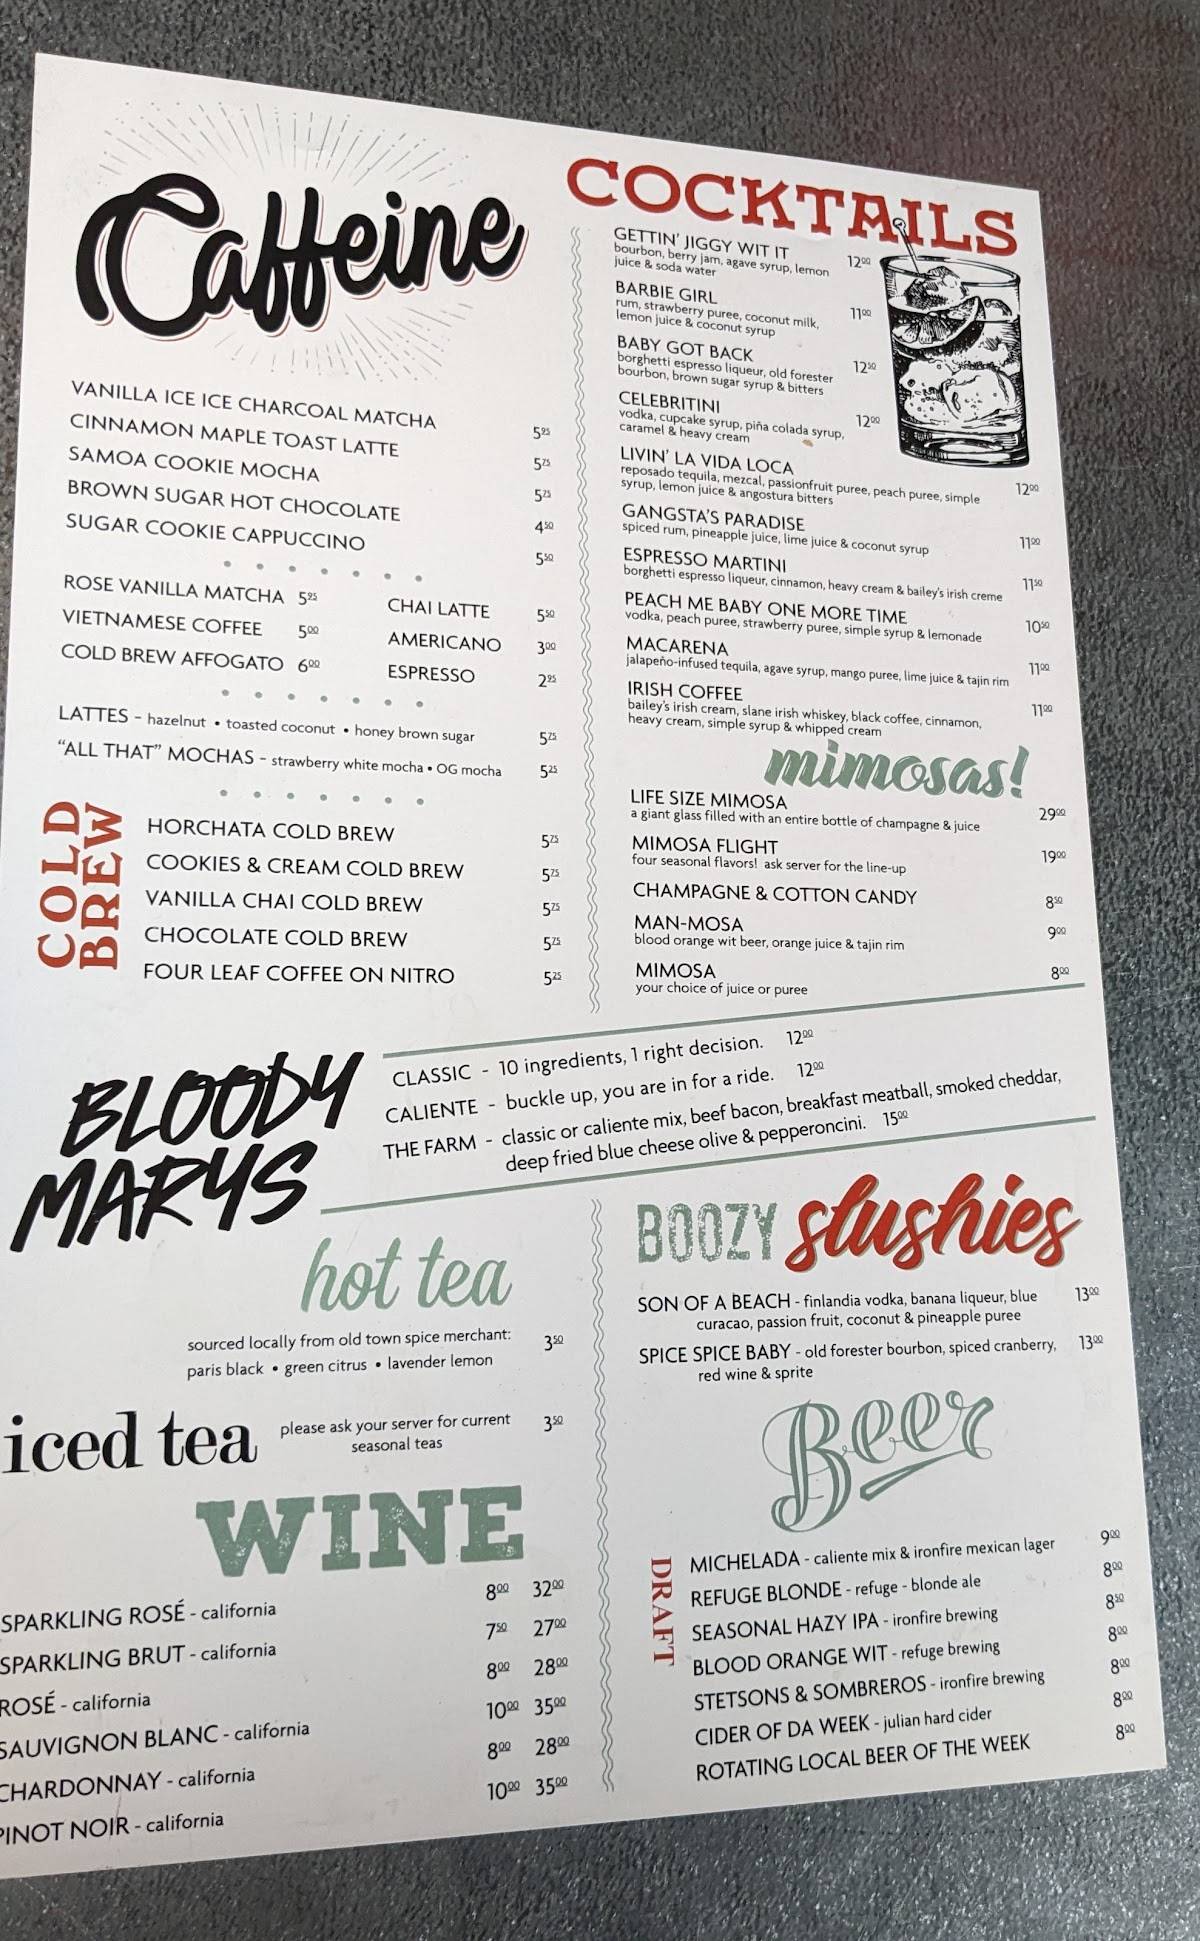 Caffeine
VANILLA ICE ICE CHARCOAL MATCHA 5.95
CINNAMON MAPLE TOAST LATTE 5.75
SAMOA COOKIE MOCHA 5.75
BROWN SUGAR HOT CHOCOLATE 4.50
SUGAR COOKIE CAPPUCCINO 5.50
ROSE VANILLA MATCHA 5.95 CHAI LATTE 5.50
VIETNAMESE COFFEE 5.00 AMERICANO 3.00
COLD BREW AFFOGATO 6.00 ESPRESSO 2.95
LATTES - hazelnut • toasted coconut • honey brown sugar 5.75
"ALL THAT" MOCHAS - strawberry white mocha • OG mocha 5.25
COLD BREW
HORCHATA COLD BREW 5.75
COOKIES & CREAM COLD BREW 5.75
VANILLA CHAI COLD BREW 5.75
CHOCOLATE COLD BREW 5.75
FOUR LEAF COFFEE ON NITRO 5.25
COCKTAILS
GETTIN' JIGGY WIT IT 12.00
bourbon, berry jam, agave syrup, lemon
juice & soda water
BARBIE GIRL 11.00
rum, strawberry puree, coconut milk,
lemon juice & coconut syrup
BABY GOT BACK 12.50
borghetti espresso liqueur, old forester
bourbon, brown sugar syrup & bitters
CELEBRITINI 12.00
vodka, cupcake syrup, piña colada syrup,
caramel & heavy cream
LIVIN' LA VIDA LOCA 12.00
reposado tequila, mezcal, passionfruit puree, peach puree, simple
syrup, lemon juice & angostura bitters
GANGSTA'S PARADISE 11.00
spiced rum, pineapple juice, lime juice & coconut syrup
ESPRESSO MARTINI 11.50
borghetti espresso liqueur, cinnamon, heavy cream & bailey's irish creme
PEACH ME BABY ONE MORE TIME 10.50
vodka, peach puree, strawberry puree, simple syrup & lemonade
MACARENA 11.00
jalapeño-infused tequila, agave syrup, mango puree, lime juice & tajin rim
IRISH COFFEE 11.00
bailey's irish cream, slane irish whiskey, black coffee, cinnamon,
heavy cream, simple syrup & whipped cream
mimosas!
LIFE SIZE MIMOSA 29.00
a giant glass filled with an entire bottle of champagne & juice
MIMOSA FLIGHT 19.00
four seasonal flavors! ask server for the line-up
CHAMPAGNE & COTTON CANDY 8.50
MAN-MOSA 9.00
blood orange wit beer, orange juice & tajin rim
MIMOSA 8.00
your choice of juice or puree
BLOODY MARYS
CLASSIC - 10 ingredients, 1 right decision. 12.00
CALIENTE - buckle up, you are in for a ride. 12.00
THE FARM - classic or caliente mix, beef bacon, breakfast meatball, smoked cheddar,
deep fried blue cheese olive & pepperoncini. 15.00
hot tea
sourced locally from old town spice merchant: 3.50
paris black • green citrus • lavender lemon
iced tea
please ask your server for current 3.50
seasonal teas
WINE
SPARKLING ROSÉ - california 8.00 32.00
SPARKLING BRUT - california 7.50 27.00
ROSÉ - california 8.00 28.00
SAUVIGNON BLANC - california 10.00 35.00
CHARDONNAY - california 8.00 28.00
PINOT NOIR - california 10.00 35.00
BOOZY slushies
SON OF A BEACH - finlandia vodka, banana liqueur, blue 13.00
curacao, passion fruit, coconut & pineapple puree
SPICE SPICE BABY - old forester bourbon, spiced cranberry, 13.00
red wine & sprite
Beer
DRAFT
MICHELADA - caliente mix & ironfire mexican lager 9.00
REFUGE BLONDE - refuge - blonde ale 8.00
SEASONAL HAZY IPA - ironfire brewing 8.50
BLOOD ORANGE WIT - refuge brewing 8.00
STETSONS & SOMBREROS - ironfire brewing 8.00
CIDER OF DA WEEK - julian hard cider 8.00
ROTATING LOCAL BEER OF THE WEEK 8.00